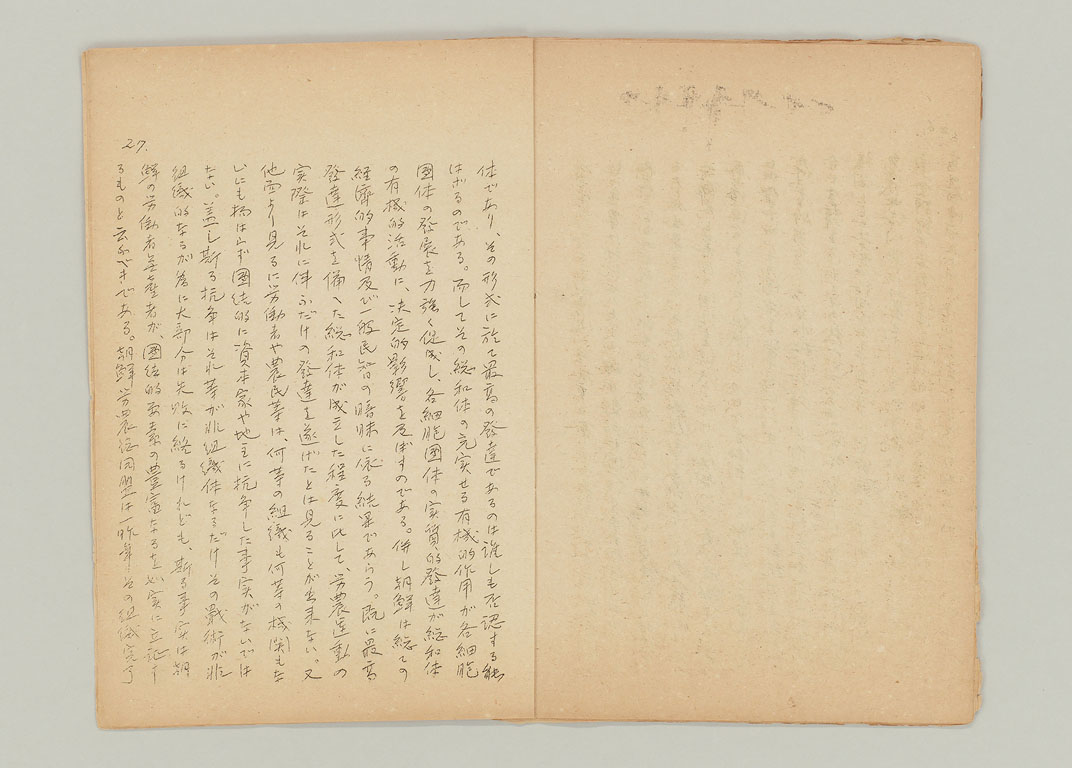 27.
体であり、その形式に於て最高の発達であるのは誰しも否認する能
はざるのである。而してその総和体の充実せる有機的作用が各細胞
團体の發展を力強く促成し、各細胞團体の実質的發達が総和体
の有機的活動に、决定的影響を及ぼすのである。併し朝鮮は総ての
経済的事情及び一般民智の暗昧に依る結果であらう。既に最高
發達形式を備へた総和体が成立した程度に比して、労農運動の
実際はそれに伴ふだけの發達を遂げたとは見ることが出来ない。又
他面より見るに労働者や農民等は、何等の組織も何等の機関もな
いにも拘はらず團結的に資本家や地主に抗争した事実がないでは
ない。盖し斯る抗争はそれ等が非組織体なるだけその戰術が非
組織的なるが為に大部分は失敗に終るけれども、斯る事実は朝
鮮の労働者無産者が、團結的要素の豊富なるを如実に立証す
るものと云ふべきである。朝鮮労農総同盟は一昨年その組織完了